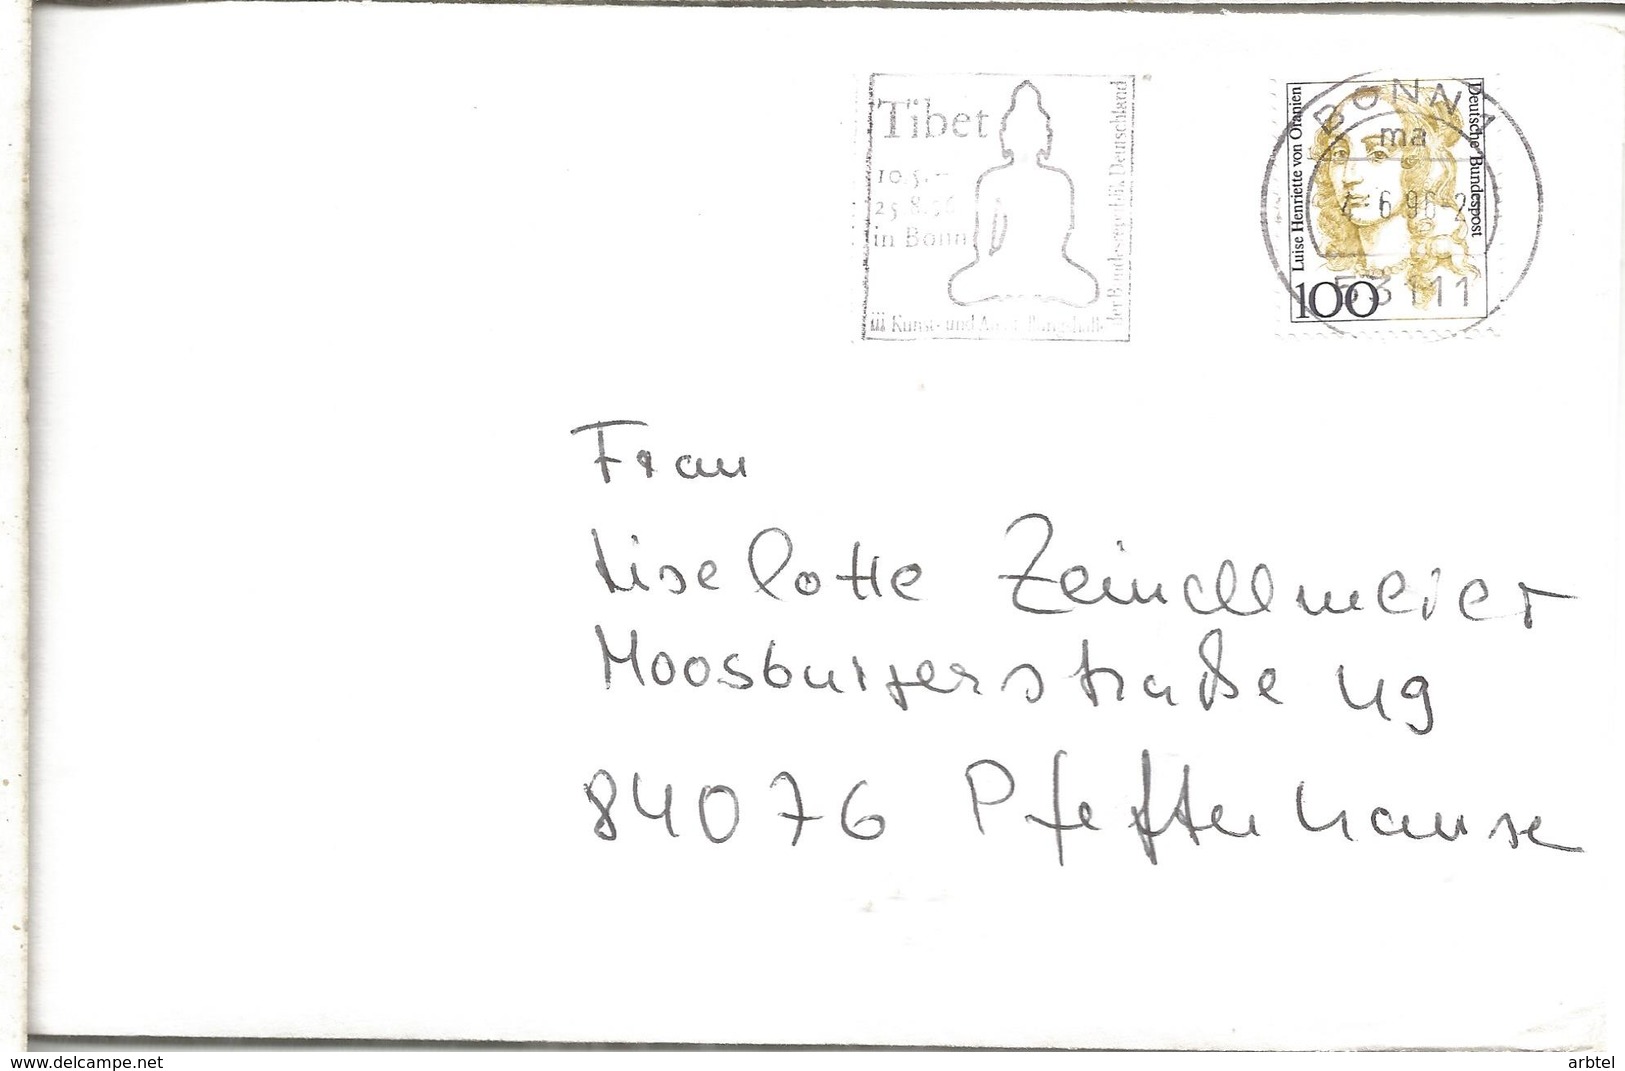 Tibet
10.5.–
25.8.96
in Bonn
Kunst- und Ausstellungshalle
der Bundesrepublik Deutschland
BONN 1
ma
4.-6.96-2
53111
Luise Henriette von Oranien
Deutsche Bundespost
100
Frau
Liselotte Zeindlmeier
Moosburgerstraße 49
84076 Pfeffenhausen
www.delcampe.net
arbtel